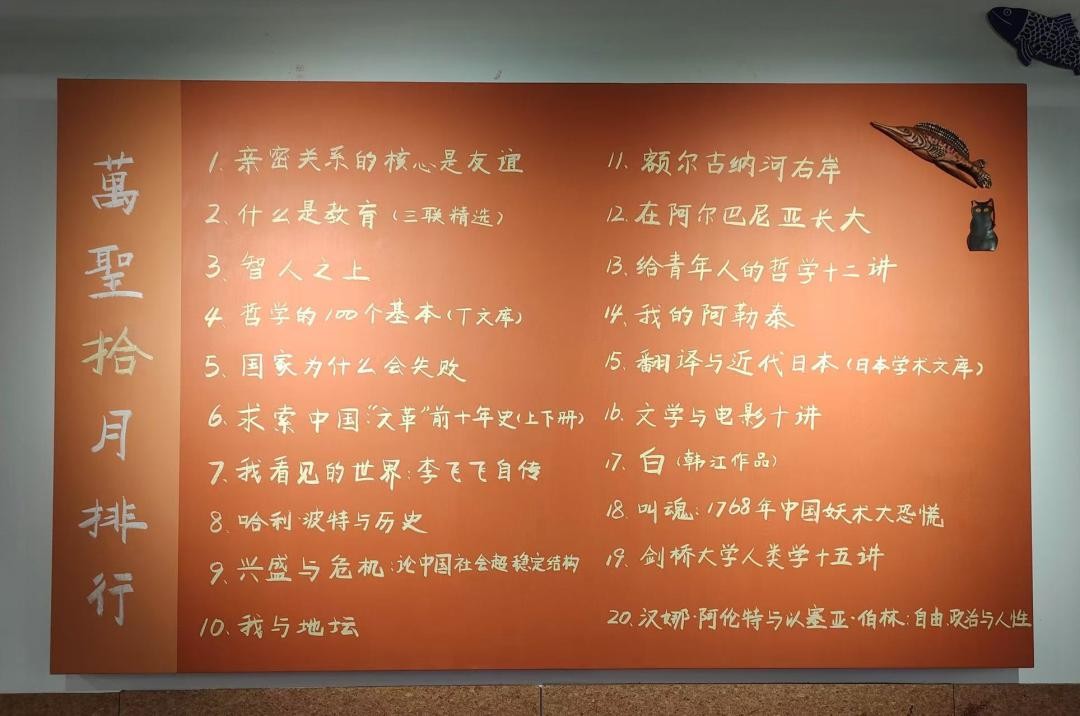 萬聖拾月排行
1. 亲密关系的核心是友谊
2. 什么是教育（三联精选）
3. 智人之上
4. 哲学的100个基本（丁文库）
5. 国家为什么会失败
6. 求索中国“文革”前十年史（上下册）
7. 我看见的世界：李飞飞自传
8. 哈利波特与历史
9. 兴盛与危机：论中国社会超稳定结构
10. 我与地坛
11. 额尔古纳河右岸
12. 在阿尔巴尼亚长大
13. 给青年人的哲学十二讲
14. 我的阿勒泰
15. 翻译与近代日本（日本学术文库）
16. 文学与电影十讲
17. 白（韩江作品）
18. 叫魂：1768年中国妖术大恐慌
19. 剑桥大学人类学十五讲
20. 汉娜·阿伦特与以塞亚·伯林：自由、政治与人性